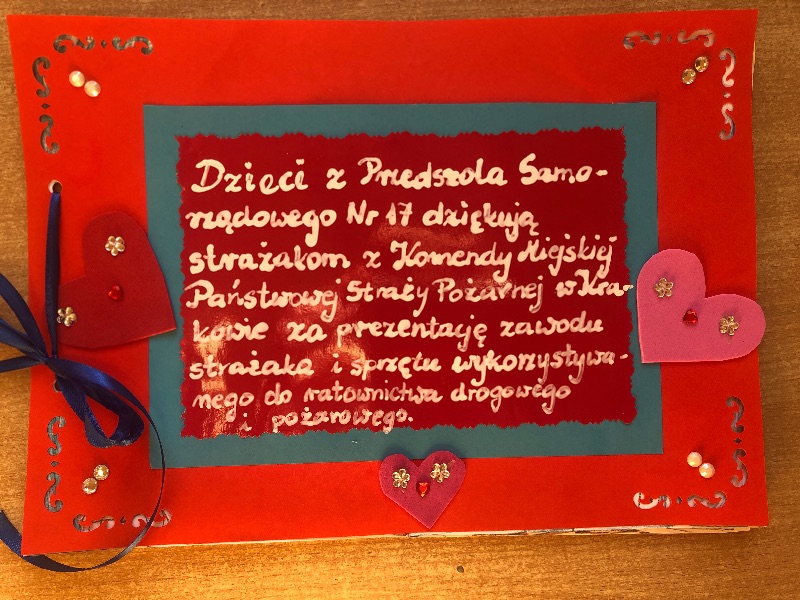 Dzieci z Przedszola Samo-
rządowego Nr 17 dziękują
strażakom z Komendy Miejskiej
Państwowej Straży Pożarnej w Kra-
kowie za prezentację zawodu
strażaka i sprzętu wykorzystywa-
nego do ratownictwa drogowego
i pożarowego.